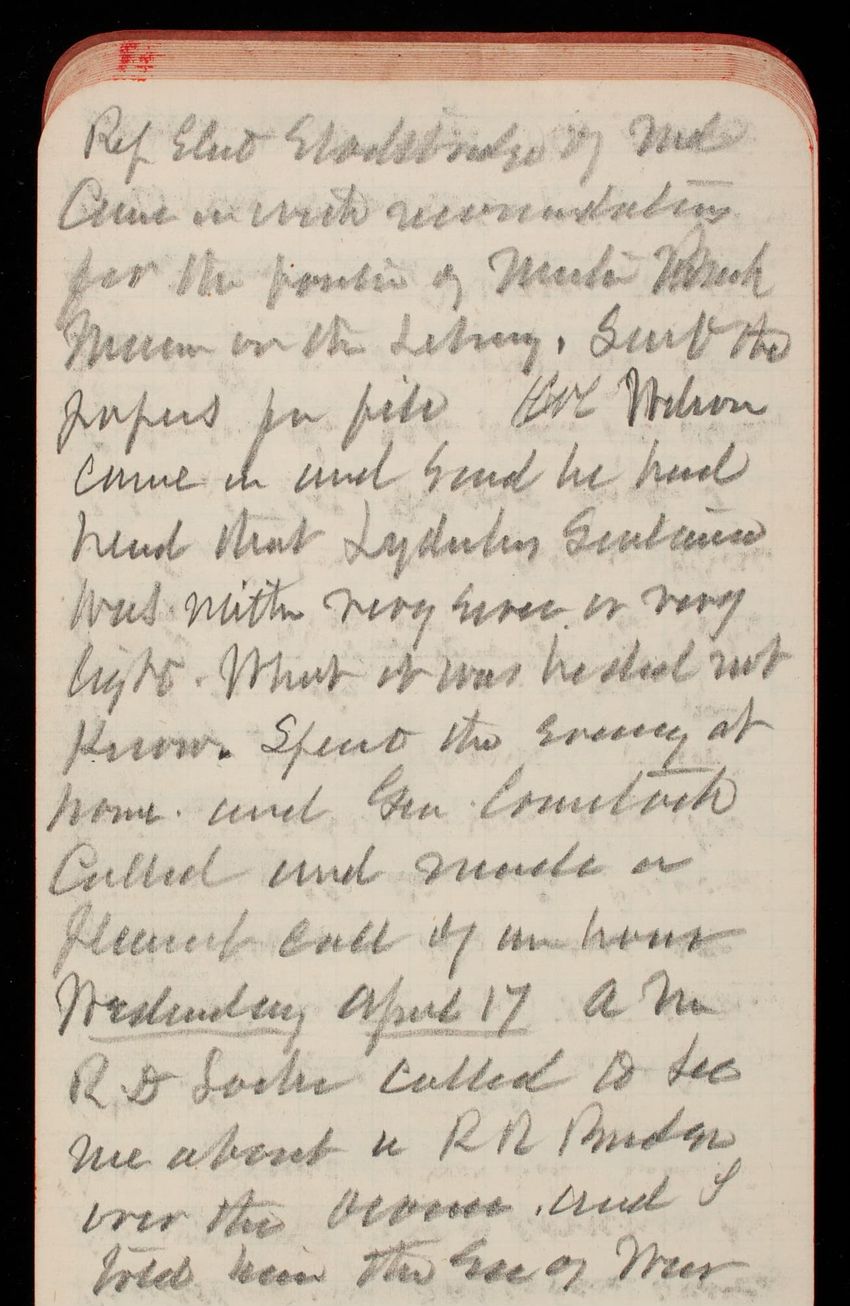 Rep Elect of Md
Came in with recomendations
for the position of
in the Library. Sent the
papers for file Wilson
came in and said he had
heard that
was either very or very
light. What it was he did not
know. Spent the evening at
home. and Gen Comstock
Called and made a
pleasant call of an hour
Wednesday April 17 A M
R D Locke called to see
me about a R R Bridge
over the and I
told him the Sec of War